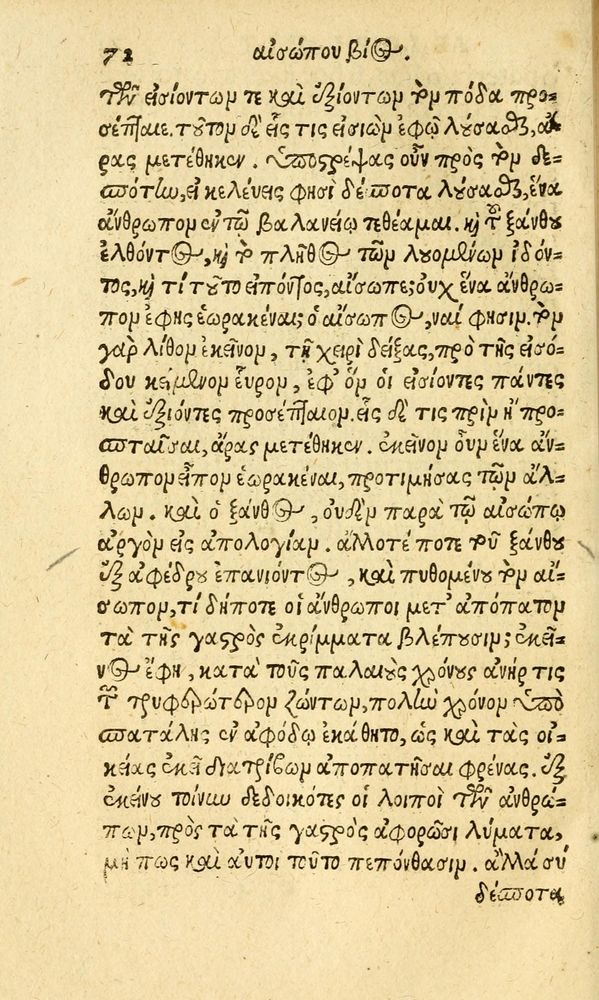 72 αἰσώπου βίος.
τῶν εἰσιόντων τε καὶ ἐξιόντων τὸν πόδα προσ=
έπταιε. τοῦτον δὲ εἷς τις εἰσιὼν ἐφ᾽ ᾧ λούσασθαι, ἄ=
ρας μετέθηκεν. ὑποστρέψας οὖν πρὸς τὸν δε=
σπότην, εἰ κελεύεις φησὶ δέσποτα λούσασθαι, ἕνα
ἄνθρωπον ἐν τῷ βαλανείῳ τεθέαμαι. καὶ τοῦ ξάνθου
ἐλθόντος, καὶ τὸ πλῆθος τῶν λουομένων ἰδόν=
τος, καὶ τί τοῦτο εἰπόντος, αἴσωπε; οὐχ ἕνα ἄνθρω=
πον ἔφης ἑωρακέναι; ὁ αἴσωπος, ναί φησιν. τὸν
γὰρ λίθον ἐκεῖνον, τῇ χειρὶ δείξας, πρὸ τῆς εἰσό=
δου κείμενον εὗρον, ἐφ᾽ ὃν οἱ εἰσίοντες πάντες
καὶ ἐξιόντες προσέπταιον. εἷς δέ τις πρὶν ἢ προ=
σπταῖσαι, ἄρας μετέθηκεν. ἐκεῖνον οὖν ἕνα ἄν=
θρωπον εἶπον ἑωρακέναι, προτιμήσας τῶν ἄλ=
λων. καὶ ὁ ξάνθος, οὐδὲν παρὰ τῷ αἰσώπῳ
ἀργὸν εἰς ἀπολογίαν. ἄλλοτέ ποτε τοῦ ξάνθου
ἐξ ἀφέδρου ἐπανιόντος, καὶ πυθομένου τὸν αἴ=
σωπον, τί δήποτε οἱ ἄνθρωποι μετ᾽ ἀπόπατον
τὰ τῆς γαστρὸς ἐκρίμματα βλέπουσιν; ἐκεῖ=
νος ἔφη, κατὰ τοὺς παλαιοὺς χρόνους ἀνήρ τις
τῶν τρυφερώτερον ζώντων, πολὺν χρόνον ὑπὸ
σπατάλης ἐν ἀφόδῳ ἐκάθητο, ὡς καὶ τὰς οἰ=
κείας ἐκεῖ διατρίβων ἀποπατῆσαι φρένας. ἐξ
ἐκείνου τοίνυν δεδοικότες οἱ λοιποὶ τῶν ἀνθρώ=
πων, πρὸς τὰ τῆς γαστρὸς ἀφορῶσι λύματα,
μή πως καὶ αὐτοὶ τοῦτο πεπόνθασιν. ἀλλὰ σύ
δέσποτα